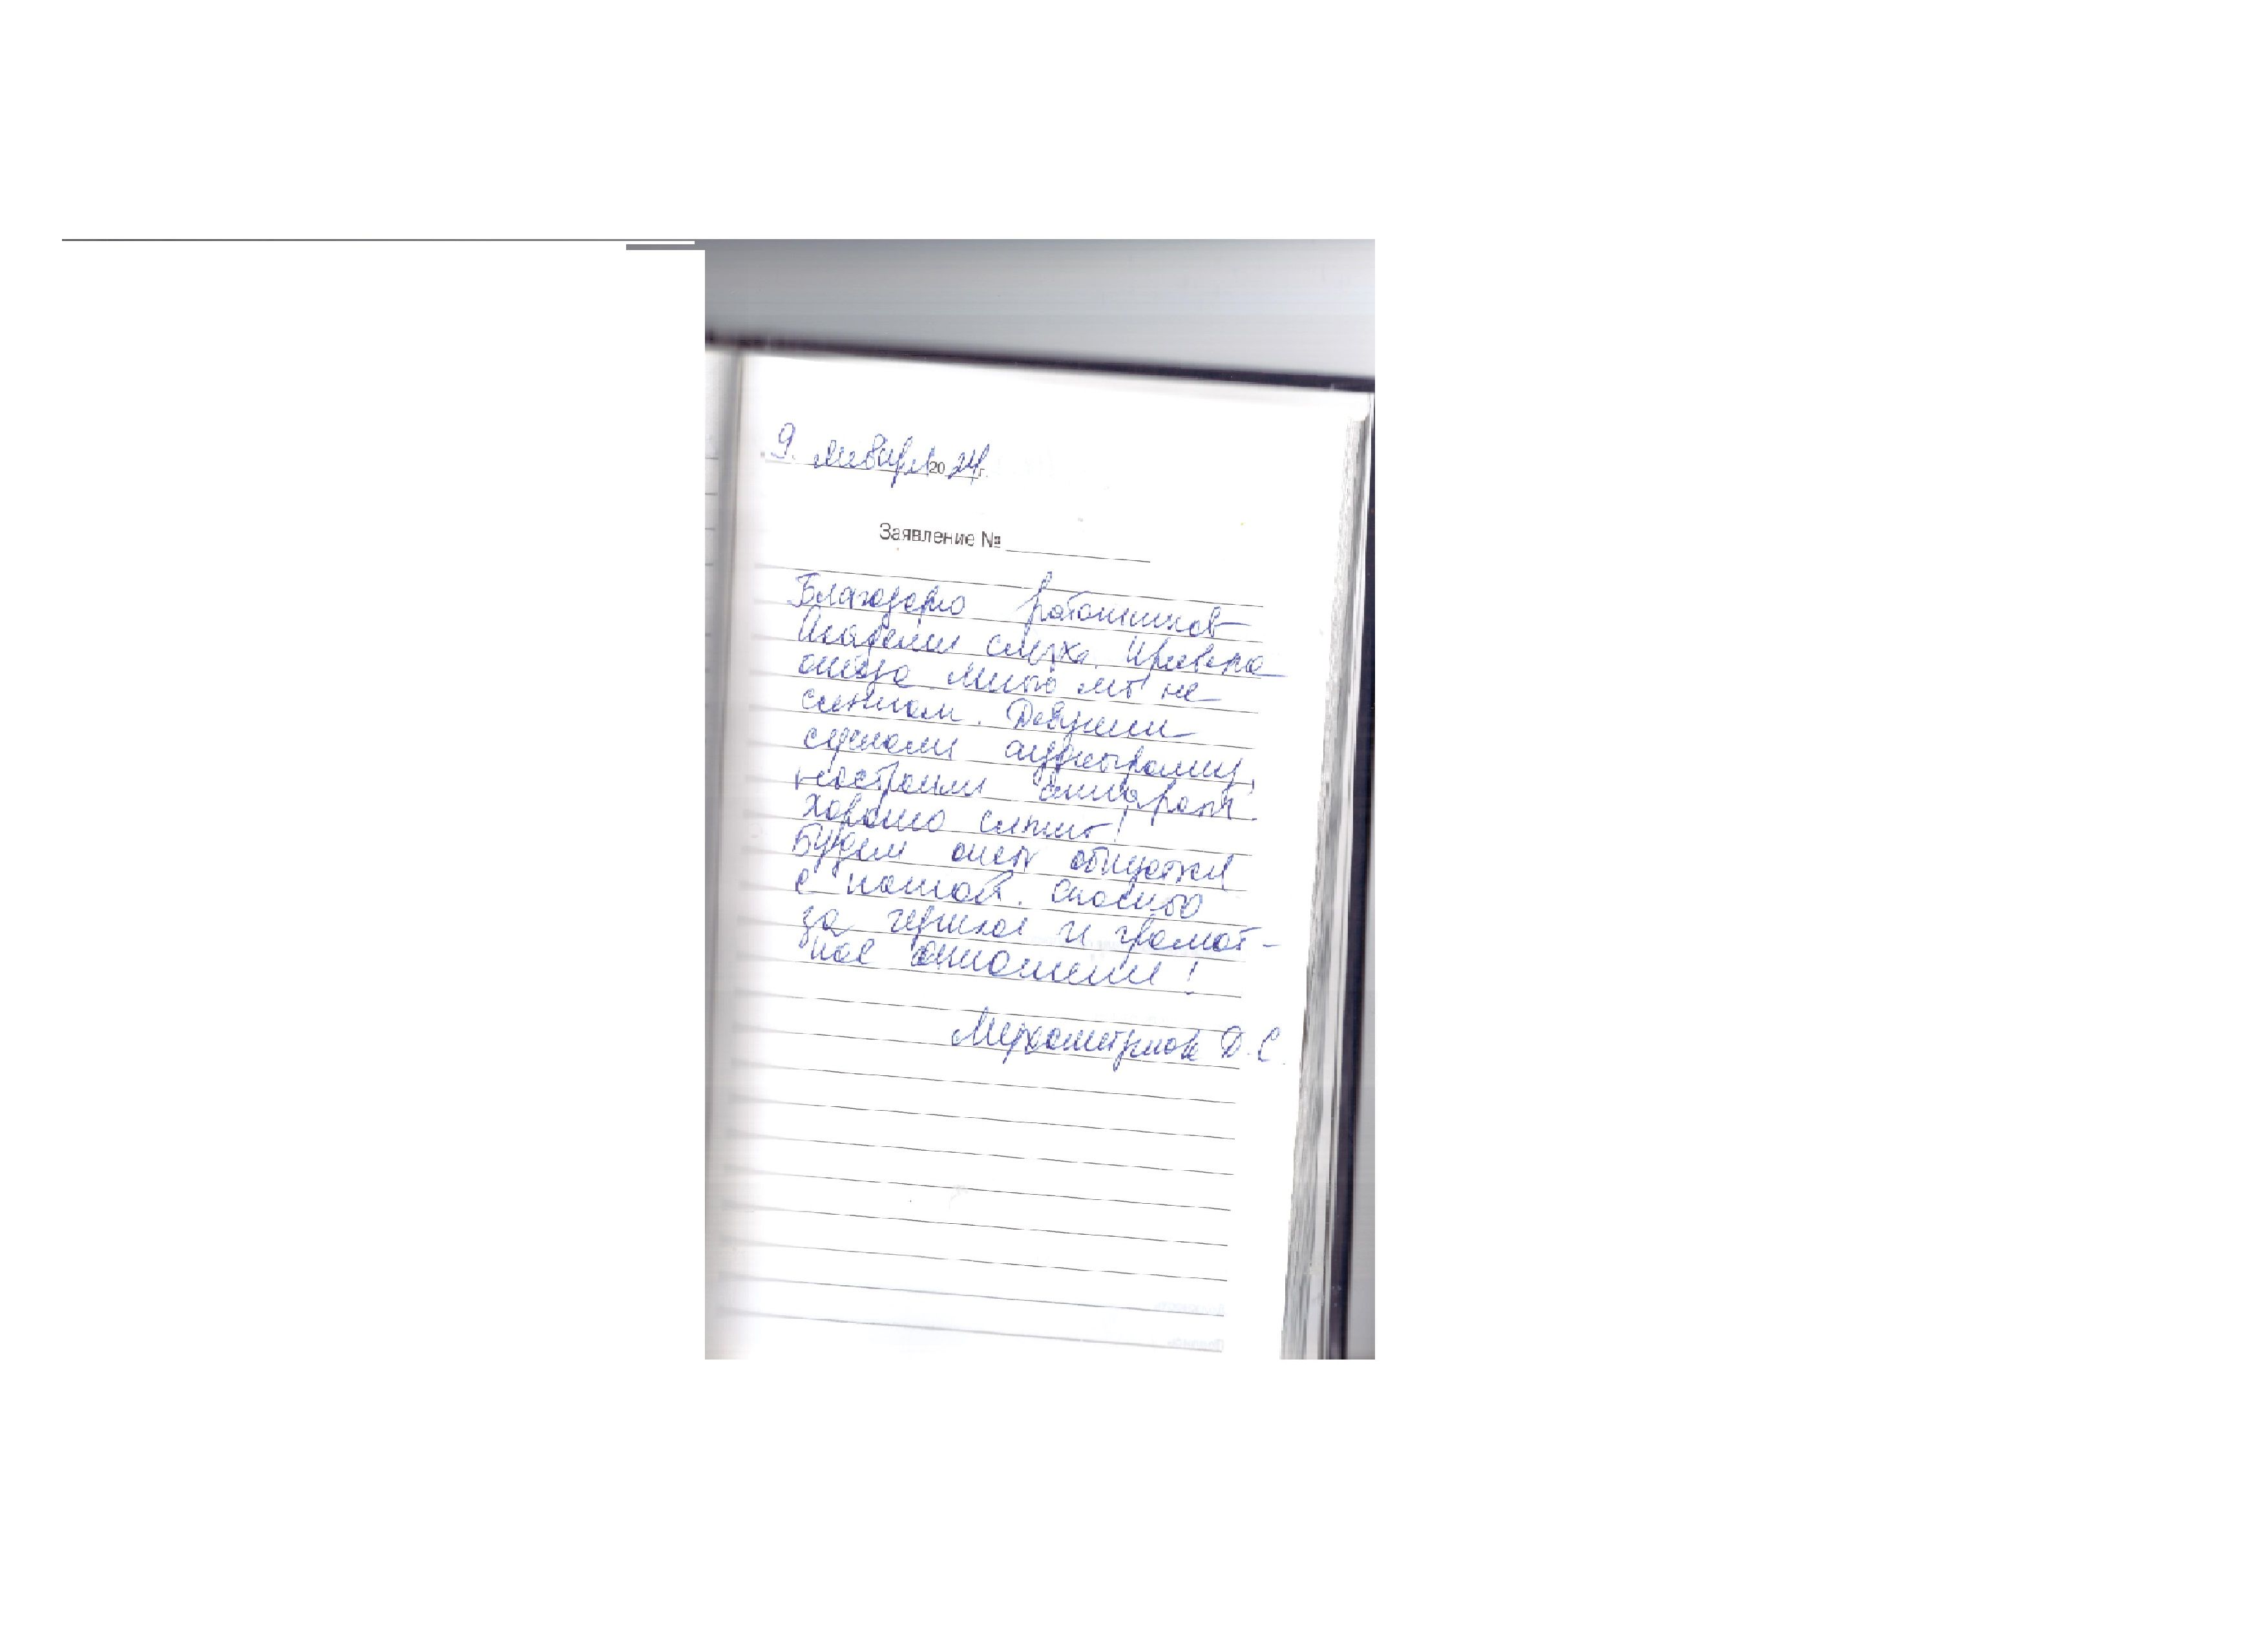 9. января 2024г.
Заявление №
Благодарю работников
Академии слуха. Привела
отца, много лет не
слышал. Девушки
сделали аудиограмму,
настроили аппарат.
Хорошо слышит!
Будем опять общаться
с папой. Спасибо
за чуткое и грамот-
ное отношение!
Мухаметзянова Д.С.